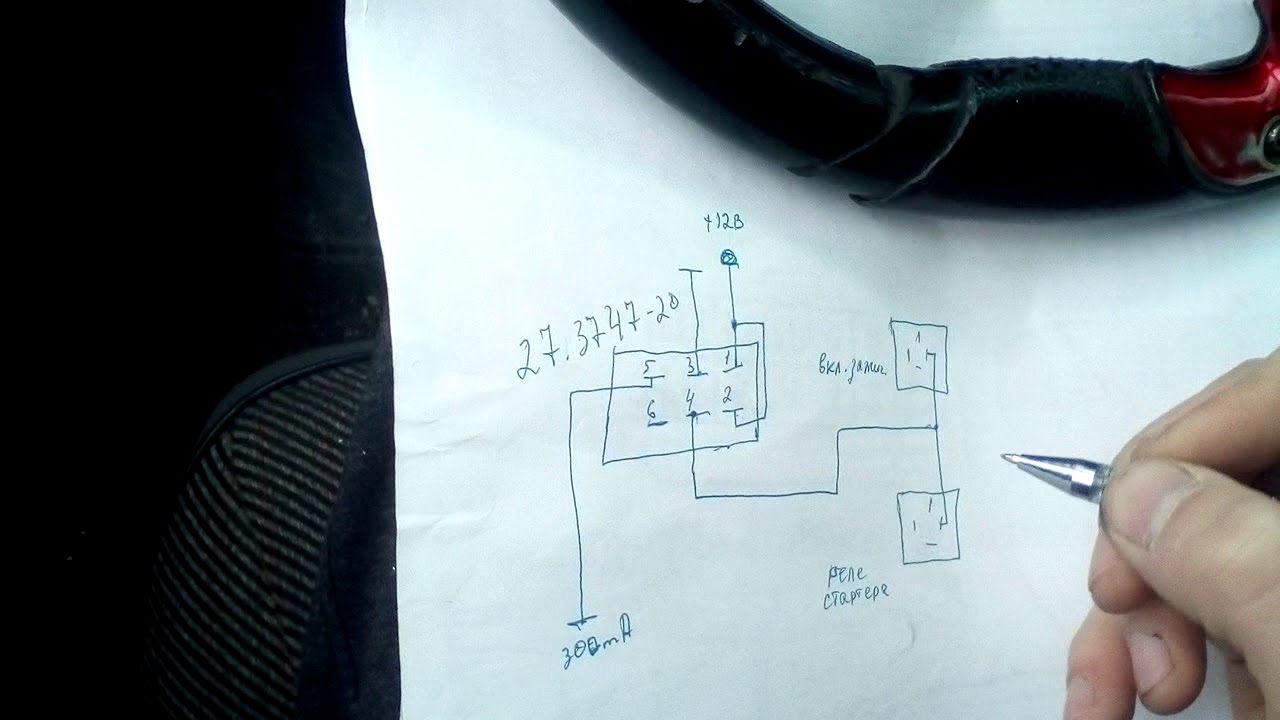 +12В
27.3747-20
5 3 1
6 4 2
вкл. зажиг
реле
стартера
300mA